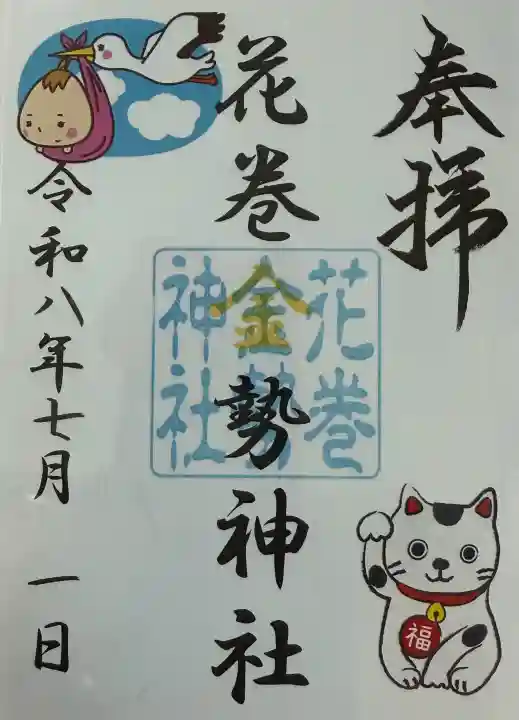 奉拝
花巻金勢神社
花巻
金勢
神社
令和八年七月 一日
福